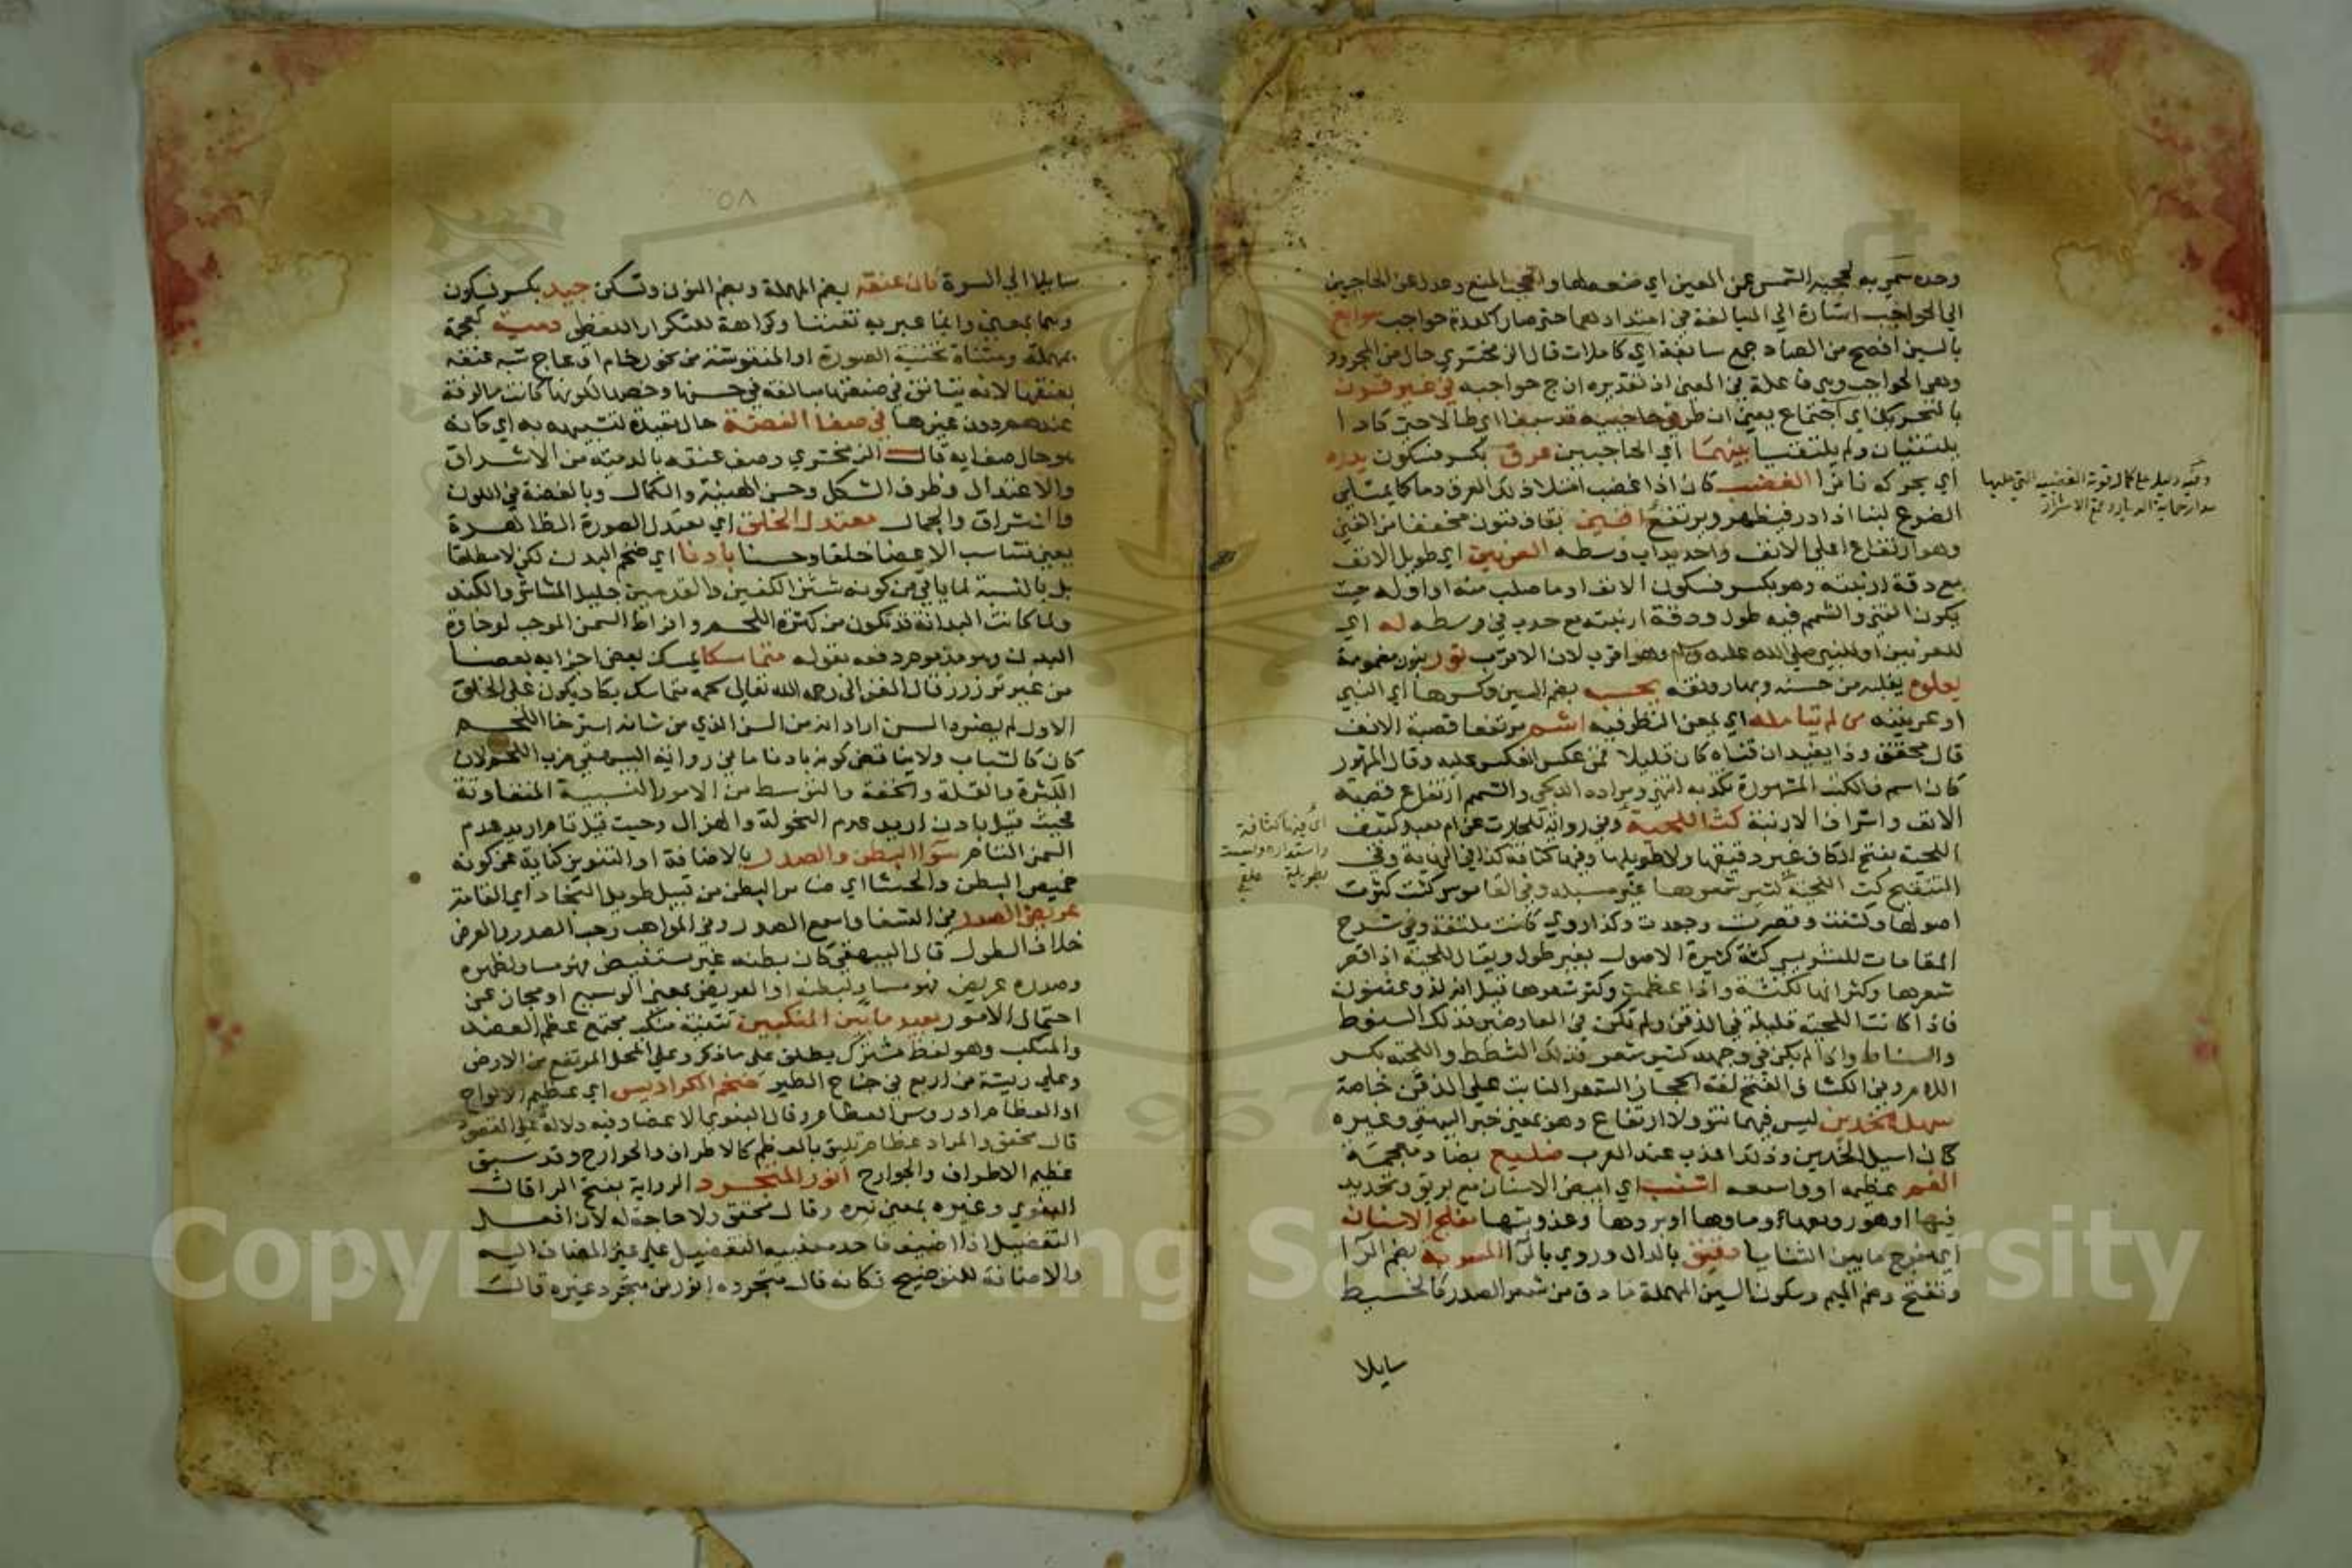 وحده سمي به لحجبه الشمس عن العين اي منعه لها والحجب المنع وعدل عن الحاجبين
الي الحواجب اشارة الي المبالغة في امتدادهما حتي صار كعدة حواجب سوابغ
بالسين افصح من الصاد جمع سابغة اي كاملات قال الزمخشري حال من المجرور
وهي الحواجب وهي فاعلة في المعني اذ تقديره ازج حواجبه في غير قرن
بالتحريك اي اجتماع يعني ان طرفي حاجبيه قد سبغا اي طالا حتي كادا
يلتقيان ولم يلتقيا بينهما اي الحاجبين عرق بكسر فسكون يدره
اي يحركه نافرا الغضب كان اذا غضب امتلا ذلك العرق دما كما يمتلي
الضرع لبنا اذا در فيظهر ويرتفع اقني بقاف فنون مخففا من القني
وهو ارتفاع اعلي الانف واحديداب وسطه العرنين اي طويل الانف
مع دقة ارنبته وهو بكسر فسكون الانف او ما صلب منه او اوله حيث
يكون القني والشمم فيه طول ودقة ارنبته مع حدب في وسطه له اي
للعرنين او للنبي صلي الله عليه وسلم وهو اقرب لان الاقرب نور بنون مضمومة
يعلوه يغلبه من حسنه وبهاء رونقه يحسبه بضم السين وكسرها اي النبي
او عرنينه من لم يتامله اي يمعن النظر فيه اشم مرتفعا قصبة الانف
قال محقق وذا يفيد ان قناه كان قليلا فمن عكس انعكس عليه وقال المشهور
كان اشم فالكتب المشهورة تكذبه انتهي ومراده الدلجي والشمم ارتفاع قصبة
الانف واشراف الارنبة كث اللحية وفي رواية للحارث عن ام معبد كثيف
اللحية بفتح الكاف غير دقيقها ولا طويلها وفيها كثافة كذا في النهاية وفي
التنقيح كث اللحية كثير شعورها غير مسبلة وفي القاموس كثت كثرت
اصولها وكثفت وقصرت وجعدت وكذا روي كانت ملتفة وفي شرح
المقامات للشريسي كثة كثيرة الاصول بغير طول ويقال للحية اذا قصر
شعرها وكثر انها لكثة واذا عظمت وكثر شعرها قيل انه لذو عثنون
فاذا كانت اللحية قليلة في الذقن ولم تكن في العارضين فذلك السنوط
والسناط واذا لم يكن في وجهه كثير شعر فذلك الشطط واللحية بكسر
اللام وفي الكشاف الفتح لغة الحجاز الشعر النابت علي الذقن خاصة
سهل الخدين ليس فيهما نتو ولا ارتفاع وهو بمعني خبر البيهقي وغيره
كان اسيل الخدين وذلك اعذب عند العرب ضليع بضاد معجمة
الفم عظيمه او واسعه اشنب اي ابيض الاسنان مع بريق وتحديد
فيها او هو رونقها وماوها او بردها وعذوبتها مفلج الاسنان
اي مفرج ما بين الثنايا دقيق بالدال وروي بالرا المسربة بضم الرا
وتفتح وضم الميم وسكون السين المهملة ما دق من شعر الصدر كالخيط
سايلا
وفيه دليل علي كمال قوة الغضب التي عليها
مدار حماية الديار وقمع الاشرار
اي فيها كثافة
واستداره وليست
بطويلة
٥٨
سايلا الي السرة كان عنقه بضم المهملة وبضم النون وتسكن جيد بكسر فسكون
وهما بمعني وانما عبر به تفننا وكراهة للتكرار اللفظي دمية كعجمة
بمهملة ومثناة تحتية الصورة او المنقوشة من نحو رخام او عاج شبه عنقه
بعنقها لانه يتانق في صنعتها مبالغة في حسنها وخصها لكونها كانت مالوفة
عندهم دون غيرها في صفا الفضة حال مقيدة لتشبيهه به اي كانه
هو حال صفايه قال الزمخشري وصف عنقه بالدمية من الاشراق
والاعتدال وظرف الشكل وحسن الهيئة والكمال وبالفضة في اللون
والاشراق والجمال معتدل الخلق اي معتدل الصورة الظاهرة
يعني متناسب الاعضا خلقا وحسنا بادنا اي ضخم البدن لكن لا مطلقا
بل بالنسبة لما ياتي من كونه شثن الكفين والقدمين جليل المشاش والكتد
ولما كانت البدانة قد تكون من كثرة اللحم وافراط السمن الموجب لرخاوة
البدن وهو مذموم دفعه بقوله متماسكا يمسك بعض اجزايه بعضا
من غير ترزرز قال الغزالي رحمه الله تعالي لحمه متماسك يكاد يكون علي الخلق
الاول لم يضره السن اراد انه من السن الذي من شانه استرخا اللحم
كان كالشباب ولا يناقض كونه بادنا ما في رواية البيهقي ضرب اللحم لان
الكثرة والقلة والخفة والتوسط من الامور النسبية المتفاوتة
فحيث قيل بادن اريد عدم النحولة والهزال وحيث قيل ضرب اريد عدم
السمن التام سوا البطن والصدر بالاضافة او التنوين كناية عن كونه
خميص البطن والحشا اي ضامر البطن من قبيل طويل النجاد اي القامة
عريض الصدر في الشفا واسع الصدر وفي المواهب رحب الصدر والعرض
خلاف الطول قال البيهقي كان بطنه غير مستفيض فهو مساو لظهره
وصدره عريض فهو مساو لبطنه او العريض بمعني الوسيع او مجاز عن
احتمال الامور بعيد ما بين المنكبين تثنية منكب مجتمع عظم العضد
والمنكب وهو لفظ مشترك يطلق علي ما ذكر وعلي المحل المرتفع من الارض
وعلي ريشة من اربع في جناح الطير ضخم الكراديس اي عظيم الالواح
او العظام او روس العظام وقال البغوي الاعضا وفيه دلالة علي القصو
قال محقق والمراد عظام تليق بالعظم كالاطراف والجوارح وقد سبق
عظيم الاطراف والجوارح انور المتجرد الرواية بفتح الرا قال
البغوي وغيره بمعني نيره وقال محقق ولا حاجة له لان افعل
التفضيل اذا اضيف فاحد معنييه التفضيل علي غير المضاف اليه
والاضافة للتوضيح فكانه قال متجرده انور من متجرد غيره قالت
Copyright © King Saud University
1957